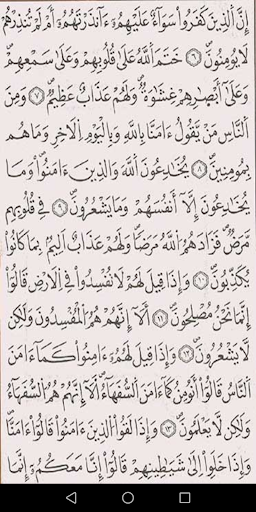 إِنَّ ٱلَّذِينَ كَفَرُواْ سَوَآءٌ عَلَيْهِمُۥٓ ءَآنذَرْتَهُمُۥٓ أَمْ لَمْ تُنذِرْهُمْ
لَا يُومِنُونَ ٦ خَتَمَ ٱللَّهُ عَلَىٰ قُلُوبِهِمْ وَعَلَىٰ سَمْعِهِمْ
وَعَلَىٰٓ أَبْصَٰرِهِمْ غِشَٰوَةٌ وَلَهُمْ عَذَابٌ عَظِيمٌ ٧ وَمِنَ
ٱلنَّاسِ مَنْ يَّقُولُ ءَامَنَّا بِاللَّهِ وَبِالْيَوْمِ ٱلْأَخِرِ وَمَا هُم
بِمُومِنِينَ ٨ يُخَٰدِعُونَ ٱللَّهَ وَٱلَّذِينَ ءَامَنُواْ وَمَا
يُخَٰدِعُونَ إِلَّآ أَنفُسَهُمْ وَمَا يَشْعُرُونَ ٩ فِي قُلُوبِهِم
مَّرَضٌ فَزَادَهُمُ ٱللَّهُ مَرَضاً وَلَهُمْ عَذَابٌ أَلِيمٌ بِمَا كَانُواْ
يُكَذِّبُونَ ١٠ وَإِذَا قِيلَ لَهُمْ لَا تُفْسِدُواْ فِي ٱلْأَرْضِ قَالُوٓاْ
إِنَّمَا نَحْنُ مُصْلِحُونَ ١١ أَلَآ إِنَّهُمْ هُمُ ٱلْمُفْسِدُونَ وَلَٰكِن
لَّا يَشْعُرُونَ ١٢ وَإِذَا قِيلَ لَهُمُۥٓ ءَامِنُواْ كَمَآ ءَامَنَ
ٱلنَّاسُ قَالُوٓاْ أَنُومِنُ كَمَآ ءَامَنَ ٱلسُّفَهَآءُ أَلَآ إِنَّهُمْ هُمُ ٱلسُّفَهَآءُ
وَلَٰكِن لَّا يَعْلَمُونَ ١٣ وَإِذَا لَقُواْ ٱلَّذِينَ ءَامَنُواْ قَالُوٓاْ ءَامَنَّا
وَإِذَا خَلَوِاْ اِلَىٰ شَيَٰطِينِهِمْ قَالُوٓاْ إِنَّا مَعَكُمُۥٓ إِنَّمَا